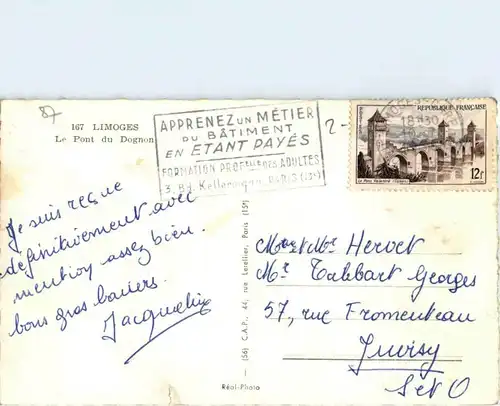 87
167 LIMOGES
Le Pont du Dognon
APPRENEZ UN MÉTIER
DU BÂTIMENT
EN ETANT PAYÉS
FORMATION PROFLLE DES ADULTES
3, Bd. Kellermann, PARIS (13e)
2-
18H30
RÉPUBLIQUE FRANÇAISE
12F
Je suis reçue
définitivement avec
mention assez bien.
bons gros baisers.
Jacqueline
(56) C.A.P., 44, rue Letellier, Paris (15e)
Réal-Photo
Mme et Mr Hervet
Mr Talibart Georges
57, rue Fromenteau
Juvisy
S et O